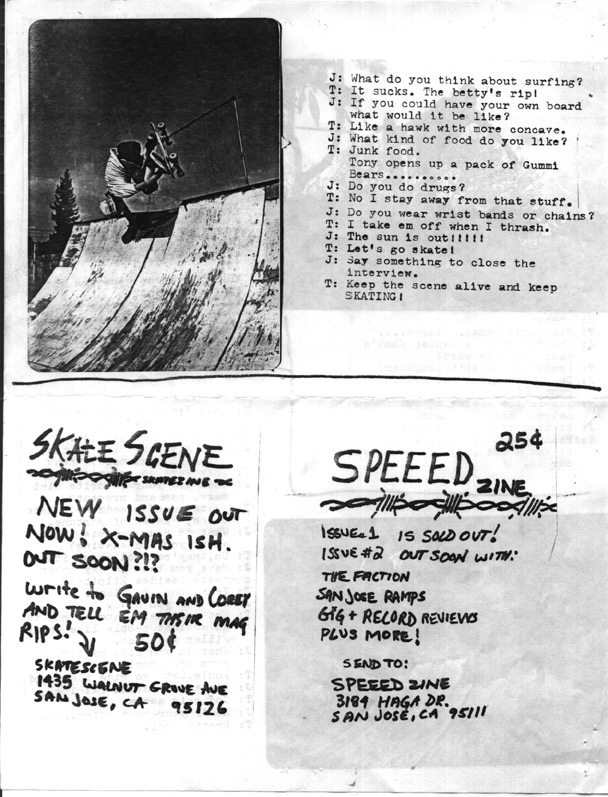 J: What do you think about surfing?
T: It sucks. The betty's rip!
J: If you could have your own board
what would it be like?
T: Like a hawk with more concave.
J: What kind of food do you like?
T: Junk food.
Tony opens up a pack of Gummi
Bears..........
J: Do you do drugs?
T: No I stay away from that stuff.
J: Do you wear wrist bands or chains?
T: I take em off when I thrash.
J: The sun is out!!!!!
T: Let's go skate!
J: Say something to close the
interview.
T: Keep the scene alive and keep
SKATING!
SKATE SCENE
SKATEZINE
NEW ISSUE OUT
NOW! X-MAS ISH.
OUT SOON?!?
WRITE to GAVIN AND COREY
AND TELL EM THEIR MAG
RIPS! 50¢
SKATESCENE
1435 WALNUT GROVE AVE
SAN JOSE, CA 95126
25¢
SPEEED
ZINE
ISSUE.1 IS SOLD OUT!
ISSUE #2 OUT SOON WITH:
THE FACTION
SAN JOSE RAMPS
GIG + RECORD REVIEWS
PLUS MORE!
SEND TO:
SPEEED ZINE
3184 HAGA DR.
SAN JOSE, CA 95111